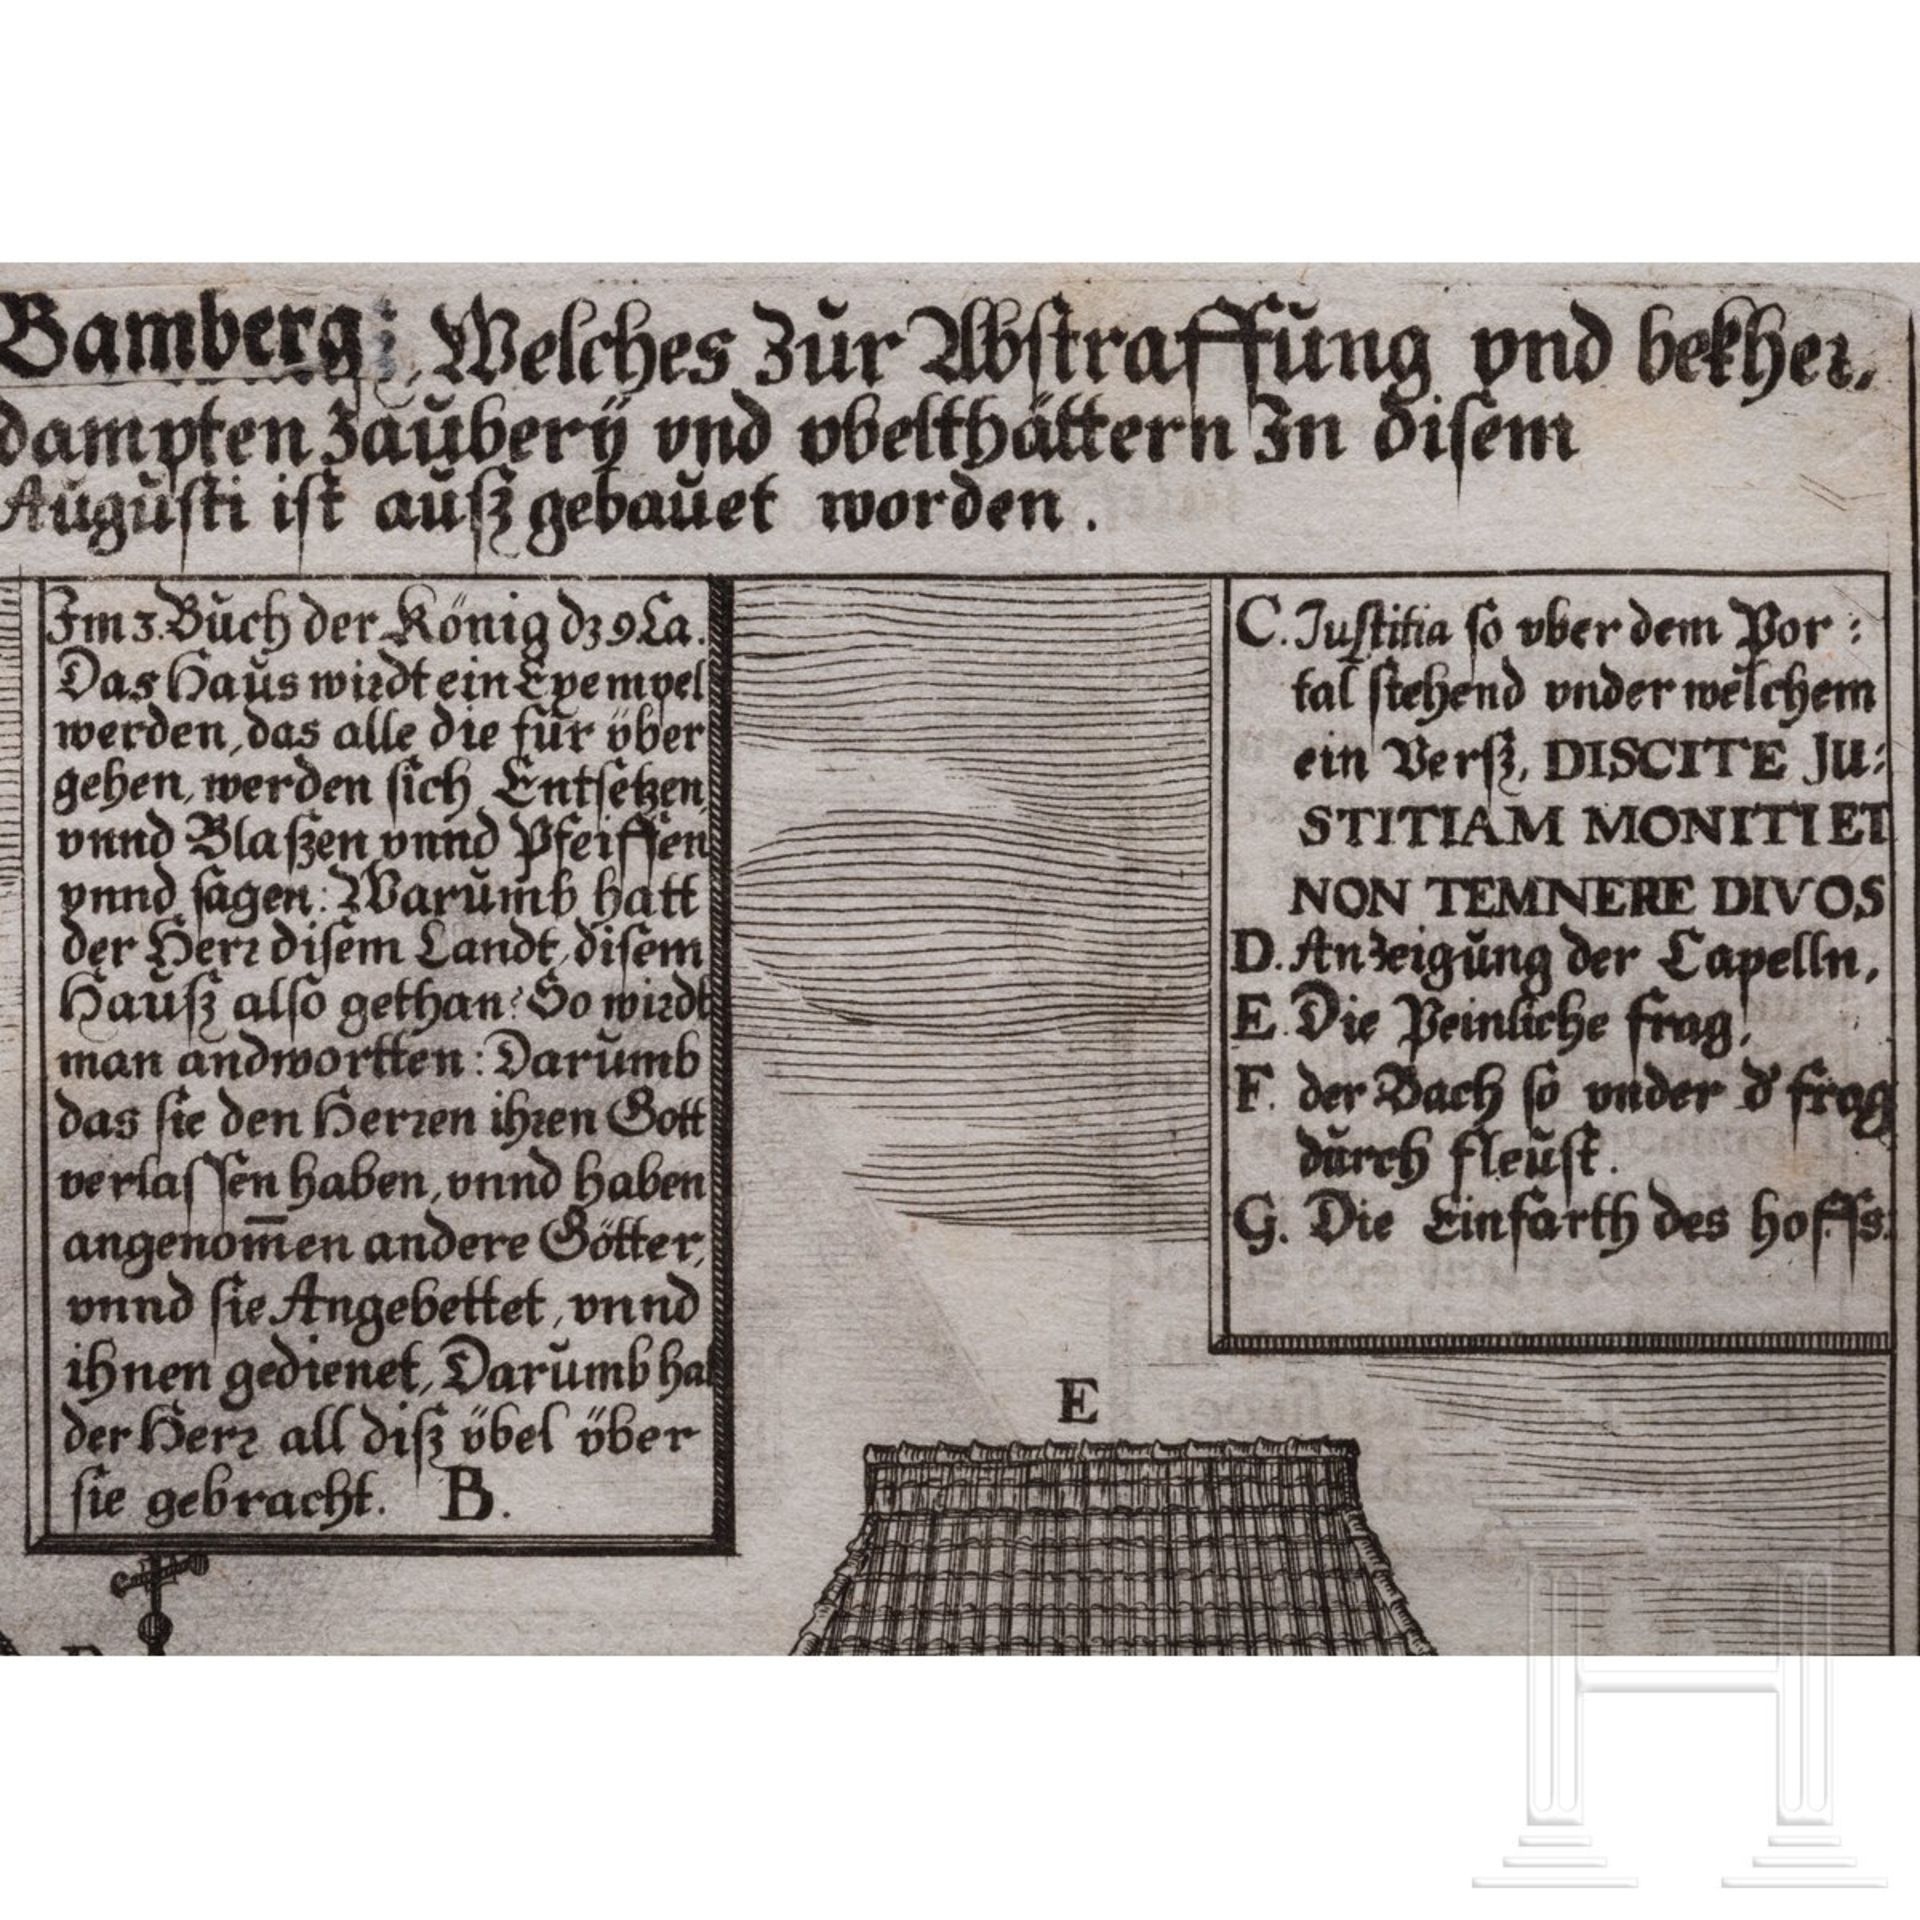 Bamberg; Welches Zur Abstraffung vnd bekher,
dampten Zaubery vnd vbelthättern In disem
Augusti ist aufz gebauet worden.
Im 3. Buch der König dz 9 Ca.
Das Haus wirdt ein Exempel
werden, das alle die für über
gehen, werden sich Entsetzen,
vnnd Blaszen vnnd Pfeiffen
vnnd sagen: Warumb hatt
der Herr disem Landt, disem
Hausz also gethan? So wirdt
man andwortten: Darumb
das sie den Herren ihren Gott
verlassen haben, vnnd haben
angenom̄en andere Götter,
vnnd sie Angebettet, vnnd
ihnen gedienet, Darumb hat
der Herr all disz übel über
sie gebracht. B.
C. Justitia so vber dem Por:
tal stehend vnder welchem
ein Versz, DISCITE JU:
STITIAM MONITI ET
NON TEMNERE DIVOS
D. Anzeigung der Capelln,
E. Die Peinliche frag,
F. der Bach so vnder d' frag
durch fleust.
G. Die Einfarth des hoffs.
E
H